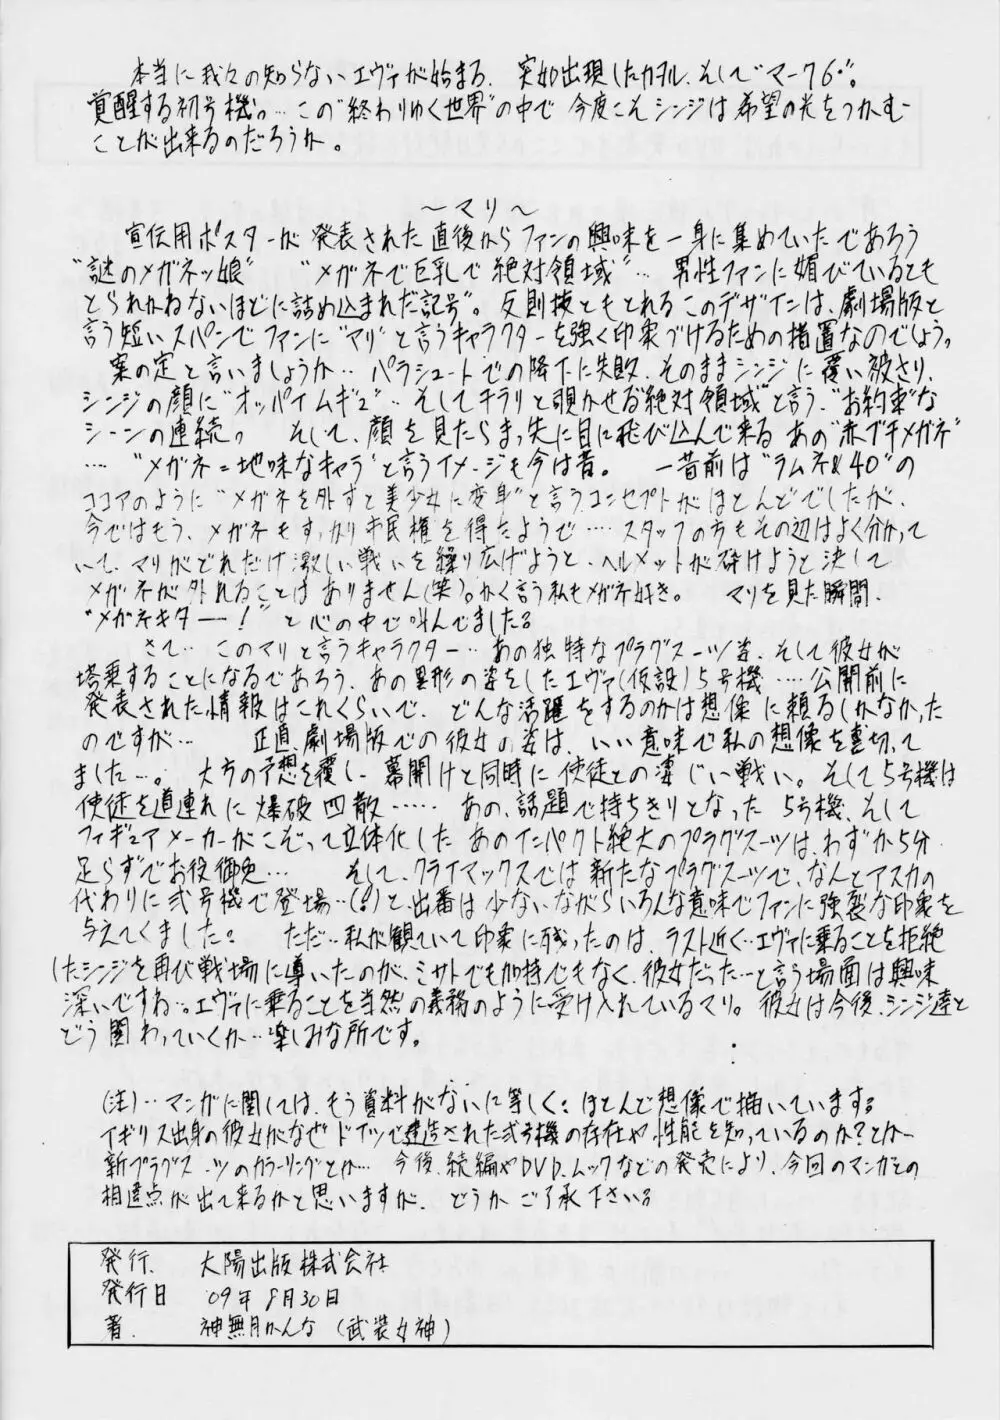 本当に我々の知らないエヴァが始まる。突如出現したカヲル、そして“マーク6”。
覚醒する初号機。…この“終わりゆく世界”の中で今度こそシンジは希望の光をつかむ
ことが出来るのだろうか。
～マリ～
宣伝用ポスターが発表された直後からファンの興味を一身に集めていたであろう
“謎のメガネッ娘” “メガネで巨乳で絶対領域”…男性ファンに媚びているとも
とられかねないほどに詰め込まれた“記号”。反則技ともとれるこのデザインは、劇場版と
言う短いスパンでファンに“マリ”と言うキャラクターを強く印象づけるための措置なのでしょう。
案の定と言いましょうか…パラシュートでの降下に失敗、そのままシンジに覆い被さり、
シンジの顔に“オッパイムギュ”…そしてチラリと覗かせる“絶対領域”と言う、“お約束”な
シーンの連続。そして、顔を見たらまっ先に目に飛び込んで来るあの“赤ブチメガネ”
…“メガネ=地味なキャラ”と言うイメージも今は昔。一昔前は“ラムネ&40”の
ココアのように“メガネを外すと美少女に変身”と言うコンセプトがほとんどでしたが、
今ではもう、メガネもすっかり市民権を得たようで…スタッフの方もその辺はよく分かって
いて、マリがどれだけ激しい戦いを繰り広げようと、ヘルメットが砕けようと決して
メガネが外れることはありません(笑)。かく言う私もメガネ好き。マリを見た瞬間、
“メガネキター！”と心の中で叫んでました。
さて…このマリと言うキャラクター…あの独特なプラグスーツ姿、そして彼女が
塔乗することになるであろう、あの異形の姿をしたエヴァ(仮設)5号機…公開前に
発表された情報はこれくらいで、どんな活躍をするのかは想像に頼るしかなかった
のですが… 正直、劇場版での彼女の姿は、いい意味で私の想像を裏切って
ました…。大方の予想を覆し、幕開けと同時に使徒との凄じい戦い。そして5号機は
使徒を道連れに爆破四散…… あの、話題で持ちきりとなった5号機、そして
フィギュアメーカーがこぞって立体化したあのインパクト絶大のプラグスーツは、わずか5分
足らずでお役御免… そして、クライマックスでは新たなプラグスーツで、なんとアスカの
代わりに弐号機で登場…(!?)と、出番は少ないながらいろんな意味でファンに強裂な印象を
与えてくました。ただ…私が観ていて印象に残ったのは、ラスト近く…エヴァに乗ることを拒絶
したシンジを再び戦場に導いたのが、ミサトでも加持でもなく、彼女だった…と言う場面は興味
深いですね…。エヴァに乗ることを当然の義務のように受け入れているマリ。彼女は今後、シンジ達と
どう関わっていくか…楽しみな所です。
(注)…マンガに関しては、もう資料がないに等しく、ほとんど想像で描いています。
イギリス出身の彼女がなぜドイツで建造された弐号機の存在や性能を知っているのか?とか
新プラグスーツのカラーリングとか… 今後、続編やDVD、ムックなどの発売により、今回のマンガとの
相違点が出て来るかと思いますが、どうかご了承下さい。
発行. 太陽出版株式会社
発行日 '09年8月30日
著. 神無月かんな(武装女神)